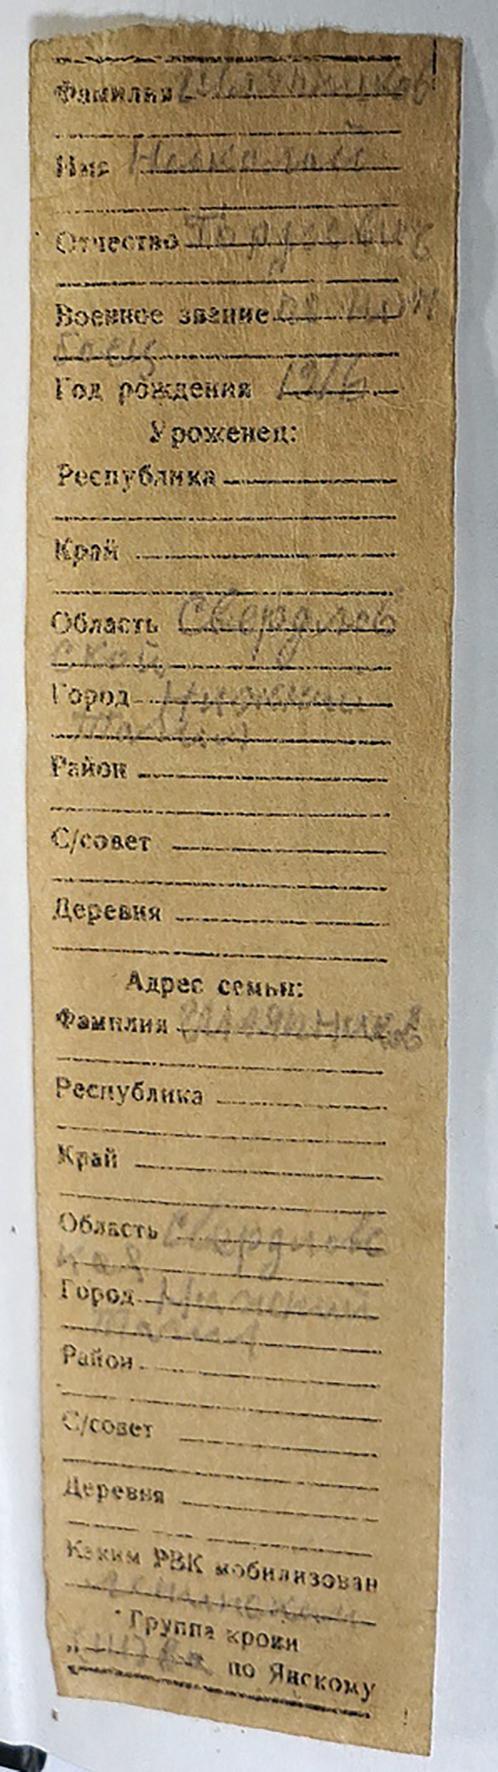 Фамилия Шляпников
Имя Николай
Отчество
Военное звание
боец
Год рождения 1916
Уроженец:
Республика
Край
Область Свердлов
ской
Город Нижний
Тагил
Район
С/совет
Деревня
Адрес семьи:
Фамилия Шляпников
Республика
Край
Область Свердловс
кая
Город Нижний
Тагил
Район
С/совет
Деревня
Каким РВК мобилизован
Группа крови
„ по Янскому